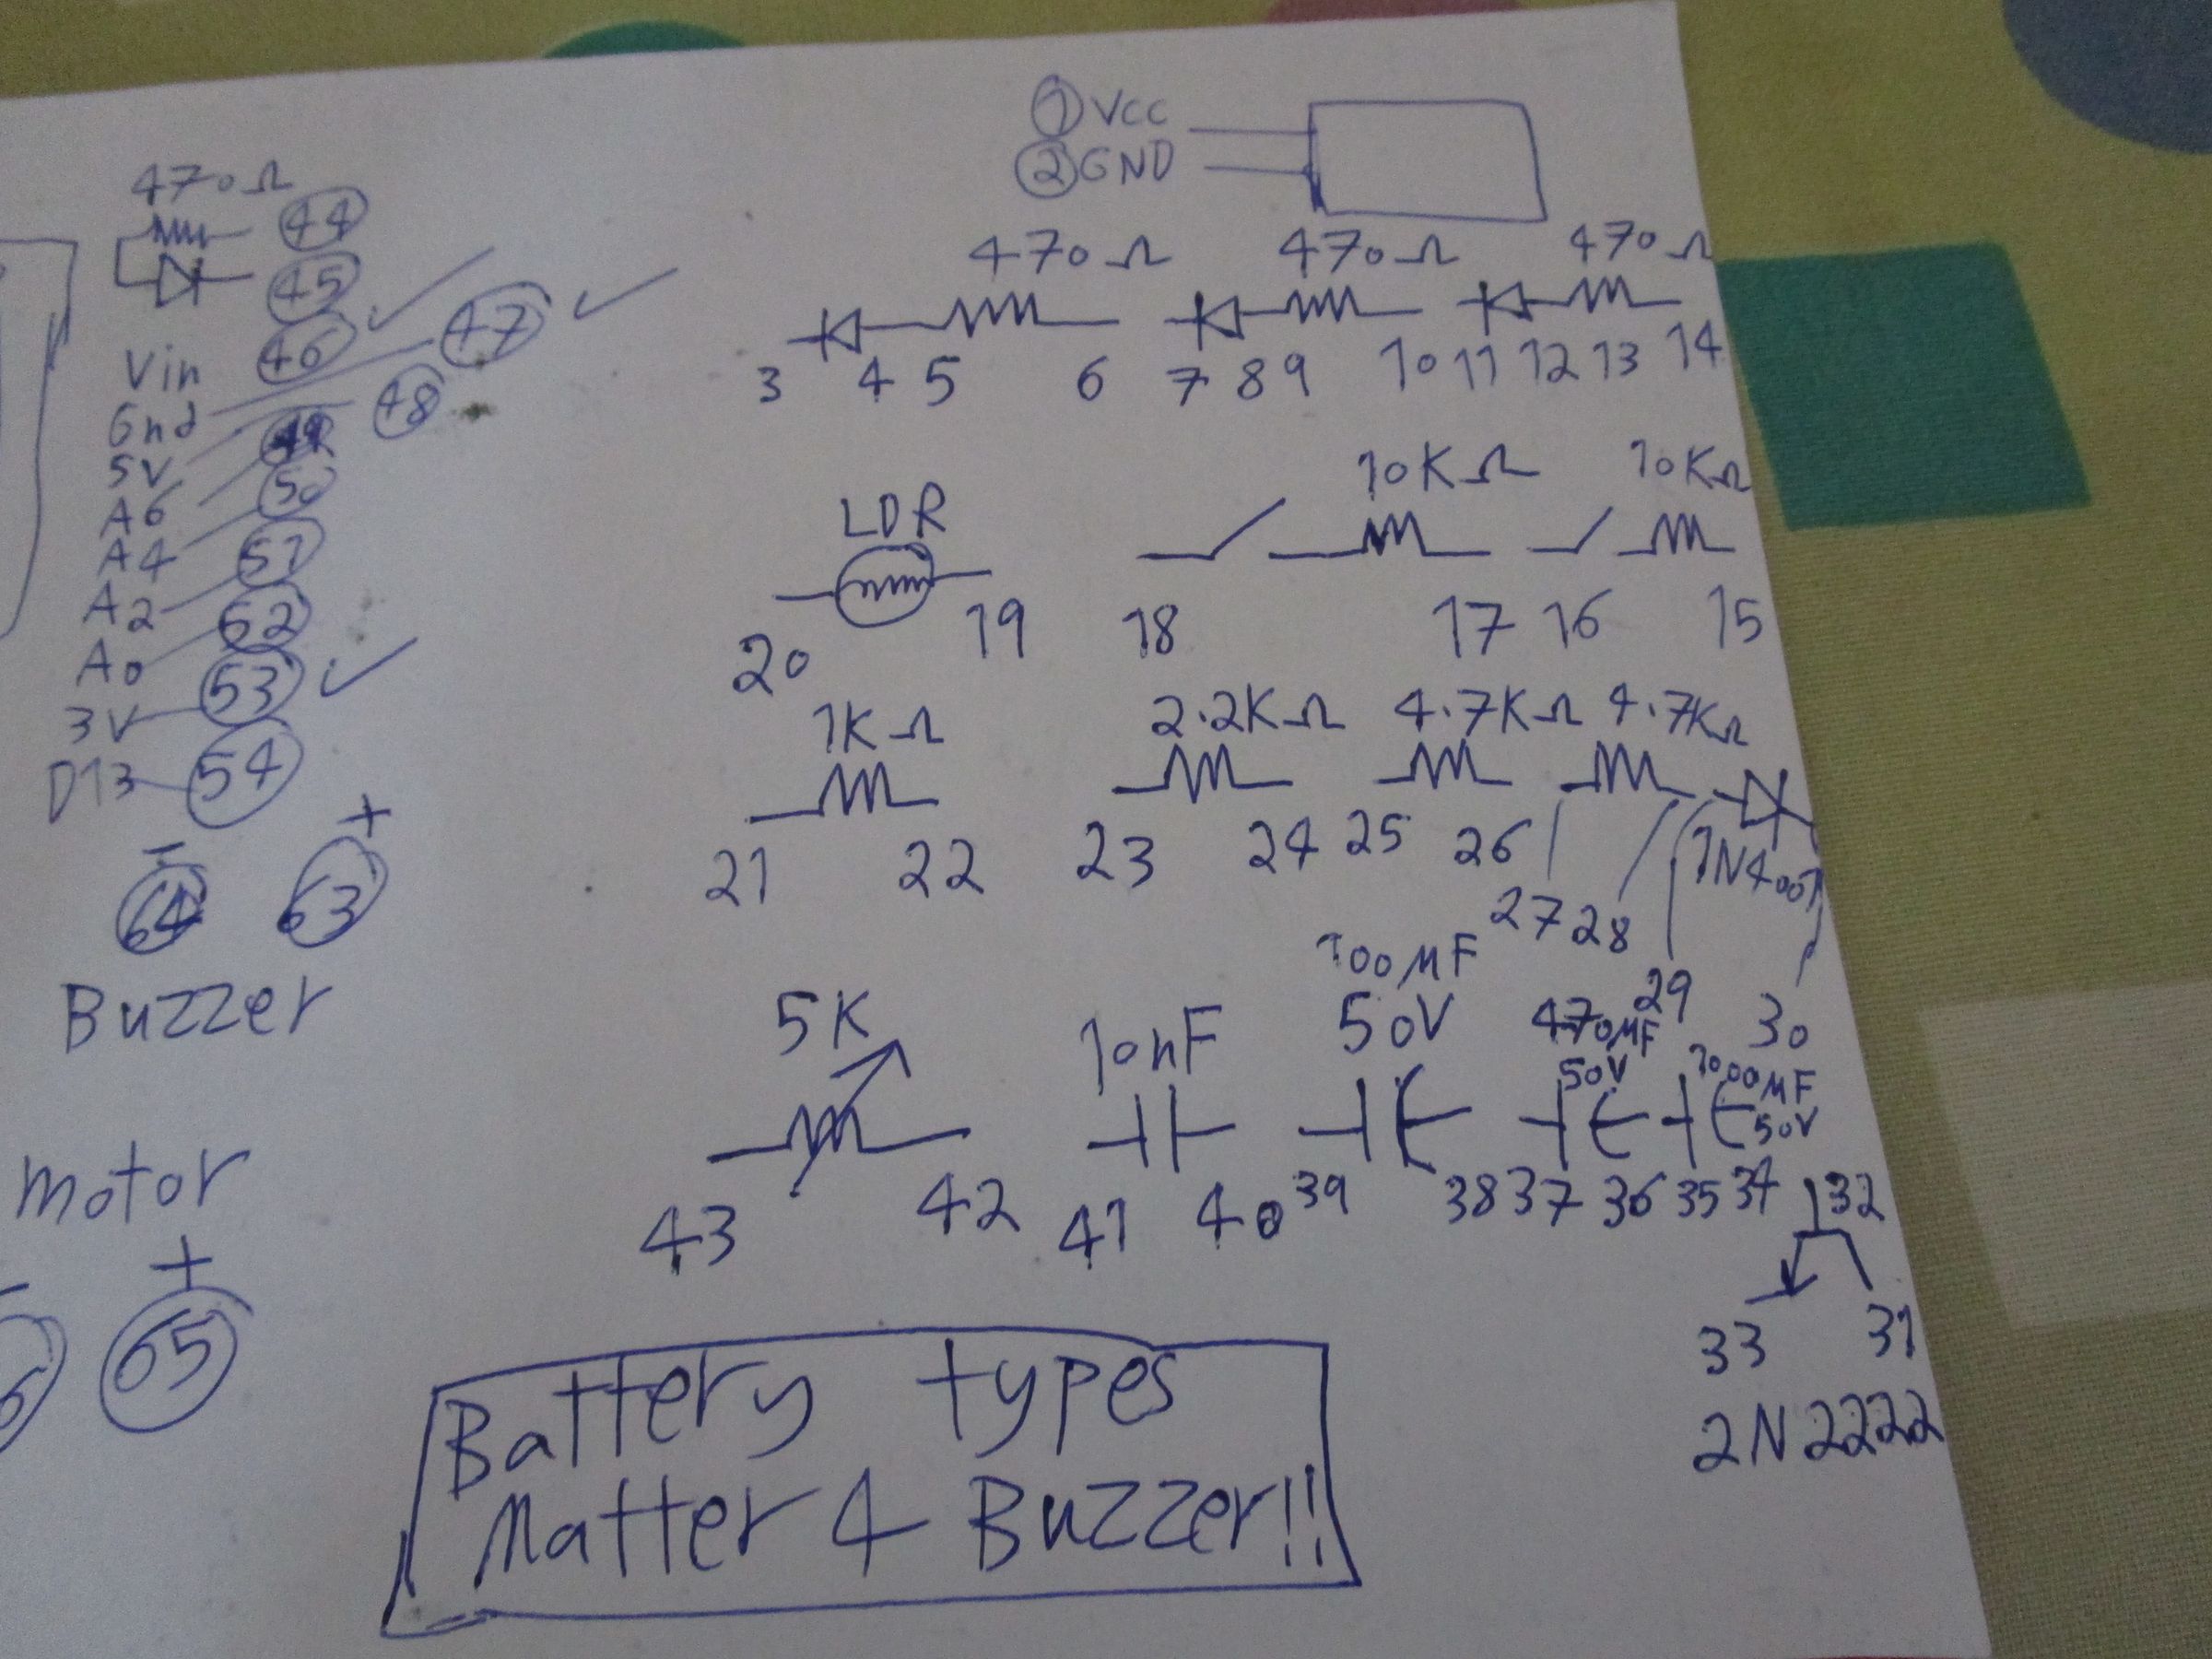 ① VCC
② GND
470Ω
44
45
Vin 46 47
Gnd 48
5V
A6
A4 50
A2 51
A0 52
3V 53
D13 54
- +
64 63
Buzzer
motor
- +
65
470Ω 470Ω 470Ω
3 4 5 6 7 8 9 10 11 12 13 14
LDR 10KΩ 10KΩ
20 19 18 17 16 15
1KΩ 2.2KΩ 4.7KΩ 4.7KΩ
1N4007
21 22 23 24 25 26
27 28 29 30
5K 10nF 100MF 50V 470MF 50V 1000MF 50V
43 42 41 40 39 38 37 36 35 34 32
33 31
2N2222
Battery types
Matter 4 Buzzer!!